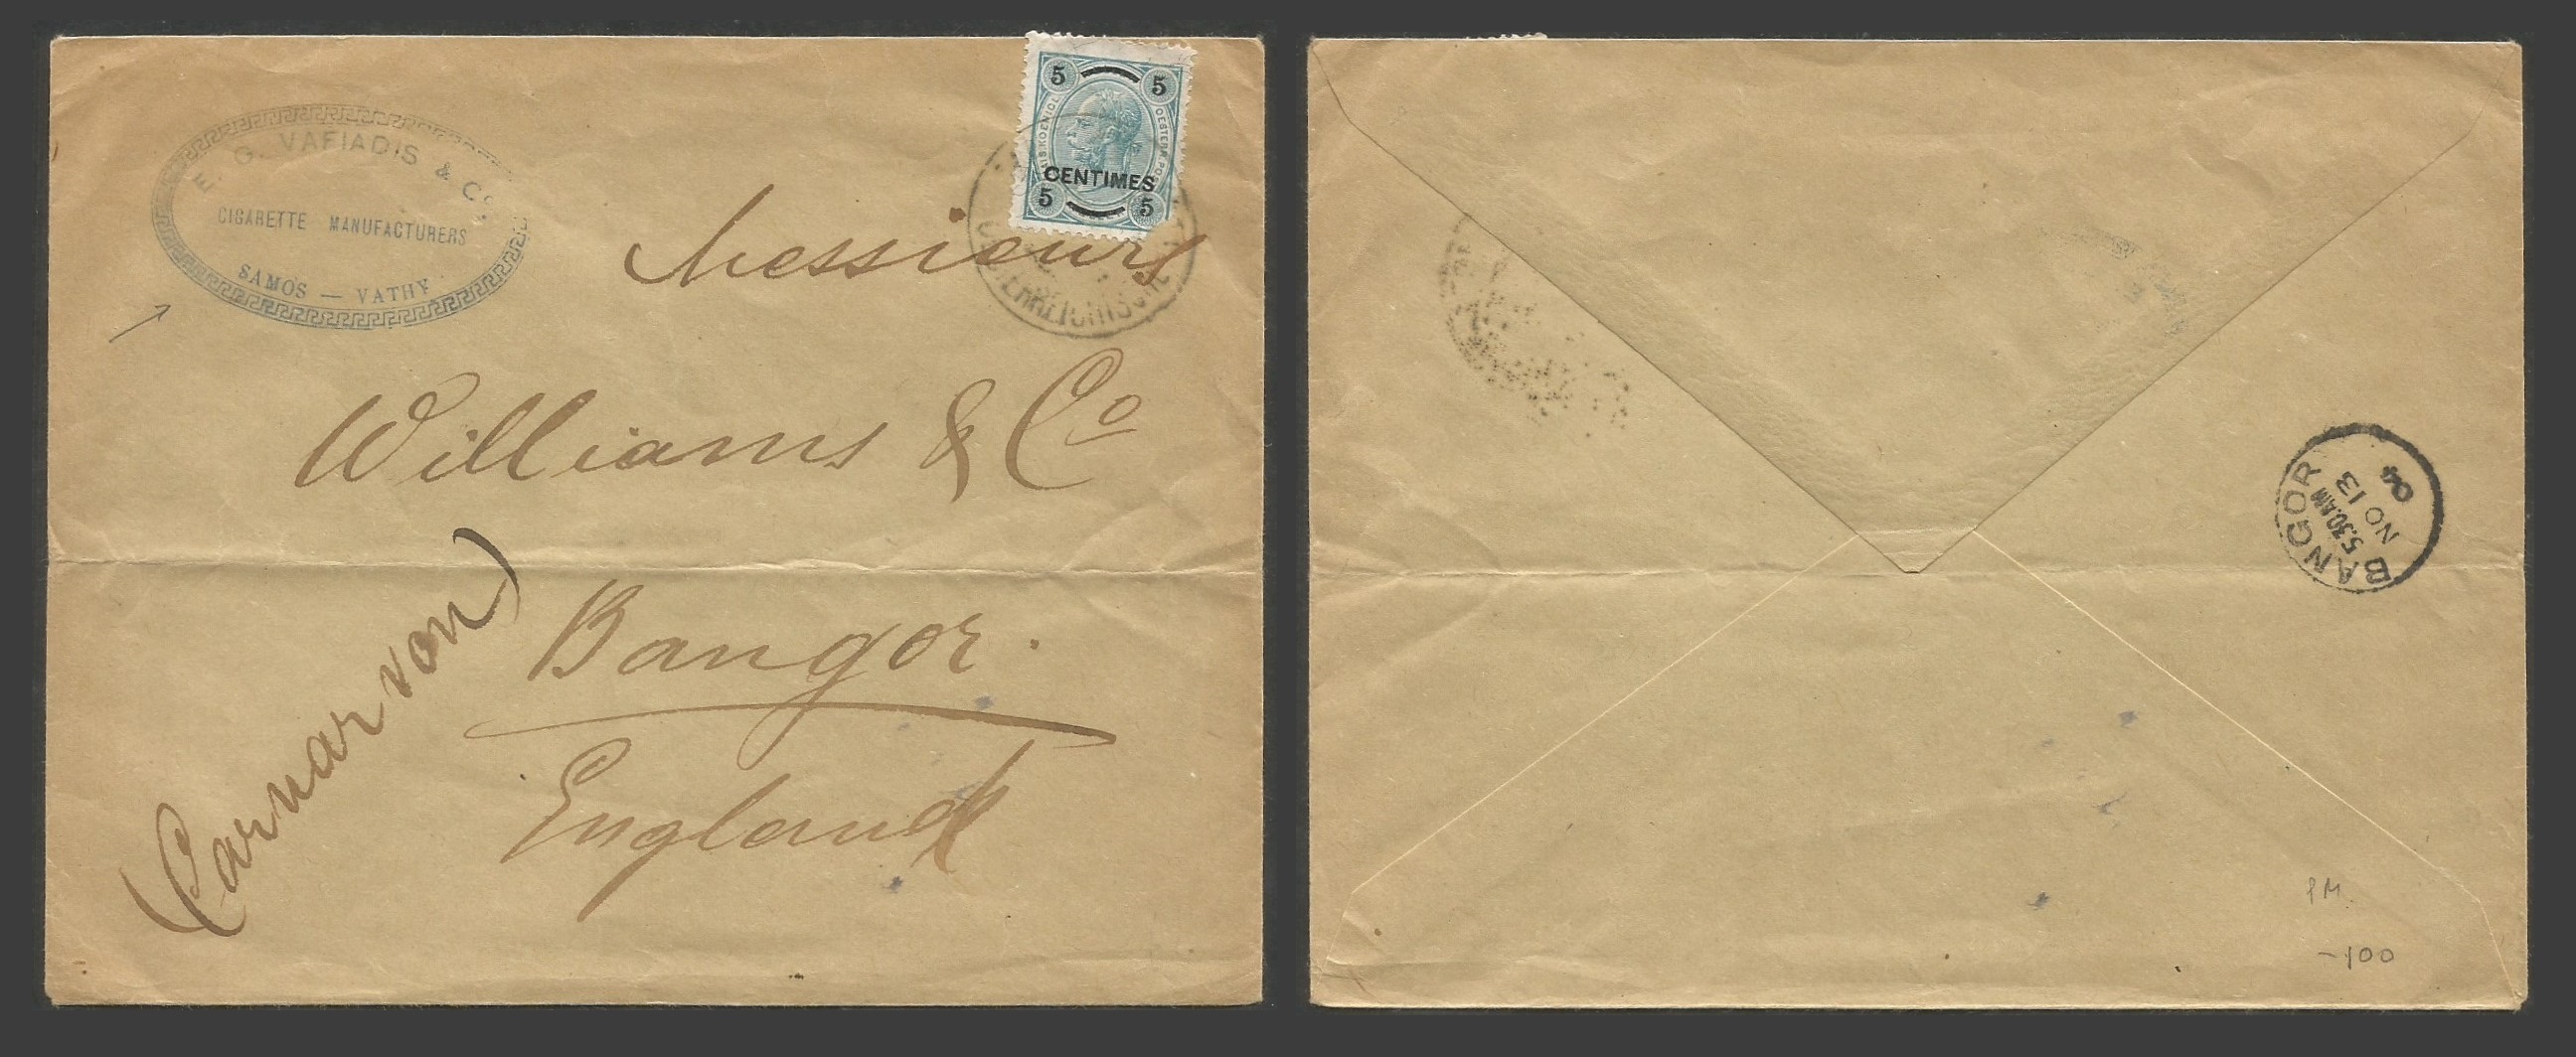 E. G. VAFIADIS & Co.
CIGARETTE MANUFACTURERS
SAMOS — VATHY
5 5
OESTERR.POST
CENTIMES
5 5
OESTERREICHISCHE
Messieurs
Williams & Co
Bangor.
England
(Carnarvon)
BANGOR
5.30AM
NO 13
04
PM
-100